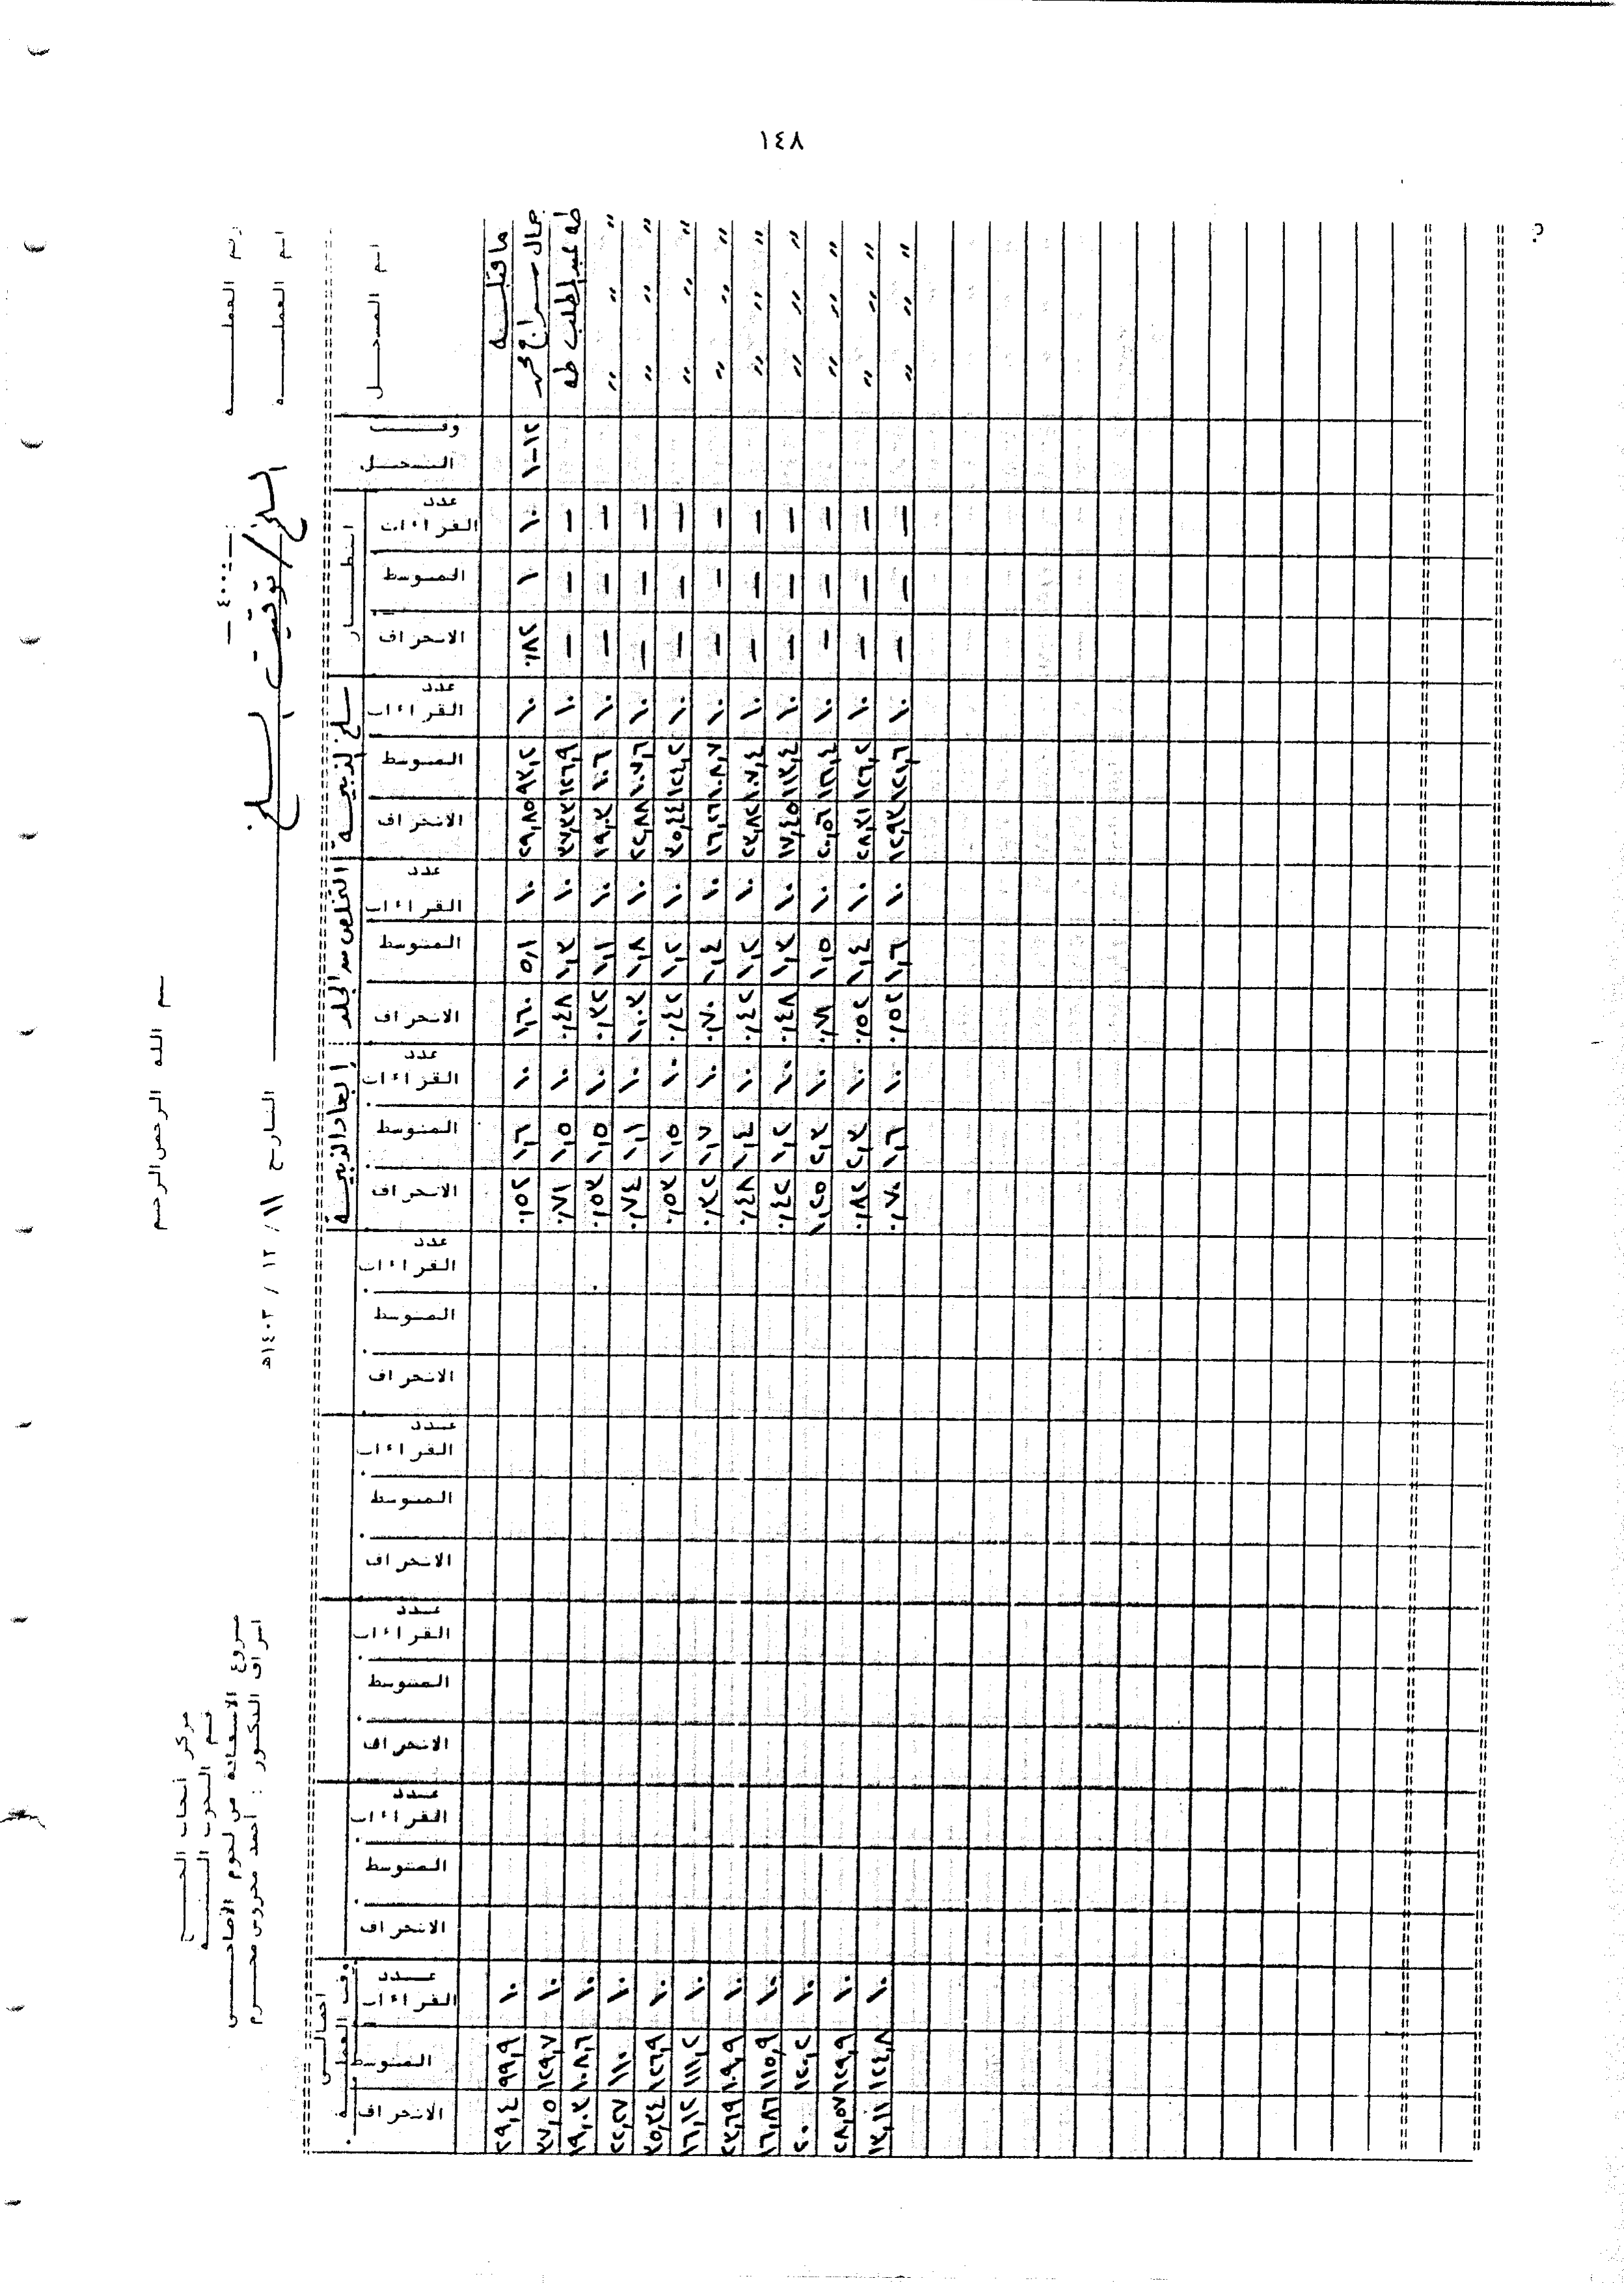 ١٤٨
بسم الله الرحمن الرحيم
مركز أبحاث الحج
قسم البحوث البيئية
مشروع الاستفادة من لحوم الأضاحي
اشراف الدكتور : أحمد محروس محرم
رقم العملية
اسم العملية
ـ ٤٠٠ ـ
السلخ / توقيت السلخ
التاريخ ١١ / ١٢ / ١٤٠٣هـ
اسم المسجل | وقت التسجيل | انتظار | سلخ الذبيحة | التخلص من الجلد | إبعاد الذبيحة | اجمالي وقت العملية
عدد القراءات | المتوسط | الانحراف | عدد القراءات | المتوسط | الانحراف | عدد القراءات | المتوسط | الانحراف | عدد القراءات | المتوسط | الانحراف | عدد القراءات | المتوسط | الانحراف | عدد القراءات | المتوسط | الانحراف | عدد القراءات | المتوسط | الانحراف | عدد القراءات | المتوسط | الانحراف | عدد القراءات | المتوسط | الانحراف
ما قبله
جمال سراج محمد | ١٢-١ | ١٠ | ١ | ٠,٨٢ | ١٠ | ٩٣,٢ | ٢٩,٨٥ | ١٠ | ٥,١ | ١,٦٠ | ١٠ | ١,٦ | ٠,٥٢ | ١٠ | ٩٩,٩ | ٢٩,٤
طه عبدالمطلب طه | — | — | — | ١٠ | ١٢٦,٩ | ٣٧,٣٣ | ١٠ | ١,٣ | ٠,٤٨ | ١٠ | ١,٥ | ٠,٧١ | ١٠ | ١٢٩,٧ | ٣٧,٥
" " " | — | — | — | ١٠ | ١٠٦ | ١٩,٠٣ | ١٠ | ١,١ | ٠,٣٢ | ١٠ | ١,٥ | ٠,٥٣ | ١٠ | ١٠٨,٦ | ١٩,٠٣
" " " | — | — | — | ١٠ | ١٠٧,٦ | ٢٢,٨٨ | ١٠ | ١,٨ | ١,٠٣ | ١٠ | ١,١ | ٠,٧٤ | ١٠ | ١١٠ | ٢٢,٢٧
" " " | — | — | — | ١٠ | ١٢٤,٢ | ٣٥,٤٤ | ١٠ | ١,٢ | ٠,٤٢ | ١٠ | ١,٥ | ٠,٥٣ | ١٠ | ١٢٦,٩ | ٣٥,٣٤
" " " | — | — | — | ١٠ | ١٠٨,٧ | ١٦,٢٦ | ١٠ | ١,٤ | ٠,٧٠ | ١٠ | ١,٧ | ٠,٣٢ | ١٠ | ١١١,٢ | ١٦,١٢
" " " | — | — | — | ١٠ | ١٠٧,٤ | ٢٣,٨٢ | ١٠ | ١,٢ | ٠,٤٢ | ١٠ | ١,٤ | ٠,٤٨ | ١٠ | ١٠٩,٩ | ٢٣,٦٩
" " " | — | — | — | ١٠ | ١١٣,٤ | ١٧,٤٥ | ١٠ | ١,٣ | ٠,٤٨ | ١٠ | ١,٢ | ٠,٤٢ | ١٠ | ١١٥,٩ | ١٦,٨٦
" " " | — | — | — | ١٠ | ١١٦,٤ | ٢٠,٥٦ | ١٠ | ١,٥ | ٠,٧١ | ١٠ | ٢,٣ | ١,٢٥ | ١٠ | ١٢٠,٢ | ٢٠
" " " | — | — | — | ١٠ | ١٢٦,٢ | ٢٨,٣١ | ١٠ | ١,٤ | ٠,٥٢ | ١٠ | ٢,٣ | ٠,٨٢ | ١٠ | ١٢٩,٩ | ٢٨,٥٧
" " " | — | — | — | ١٠ | ١٢١,٦ | ١٢,٩٣ | ١٠ | ١,٦ | ٠,٥٢ | ١٠ | ١,٦ | ٠,٧٠ | ١٠ | ١٢٤,٨ | ١٣,١١